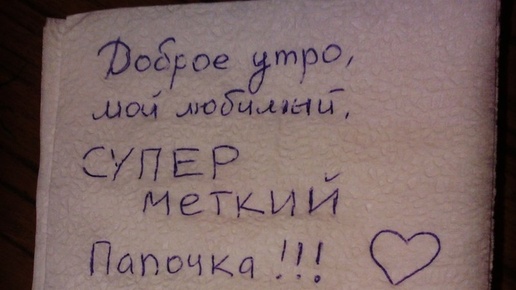 Доброе утро,
мой любимый,
СУПЕР
меткий
Папочка!!!